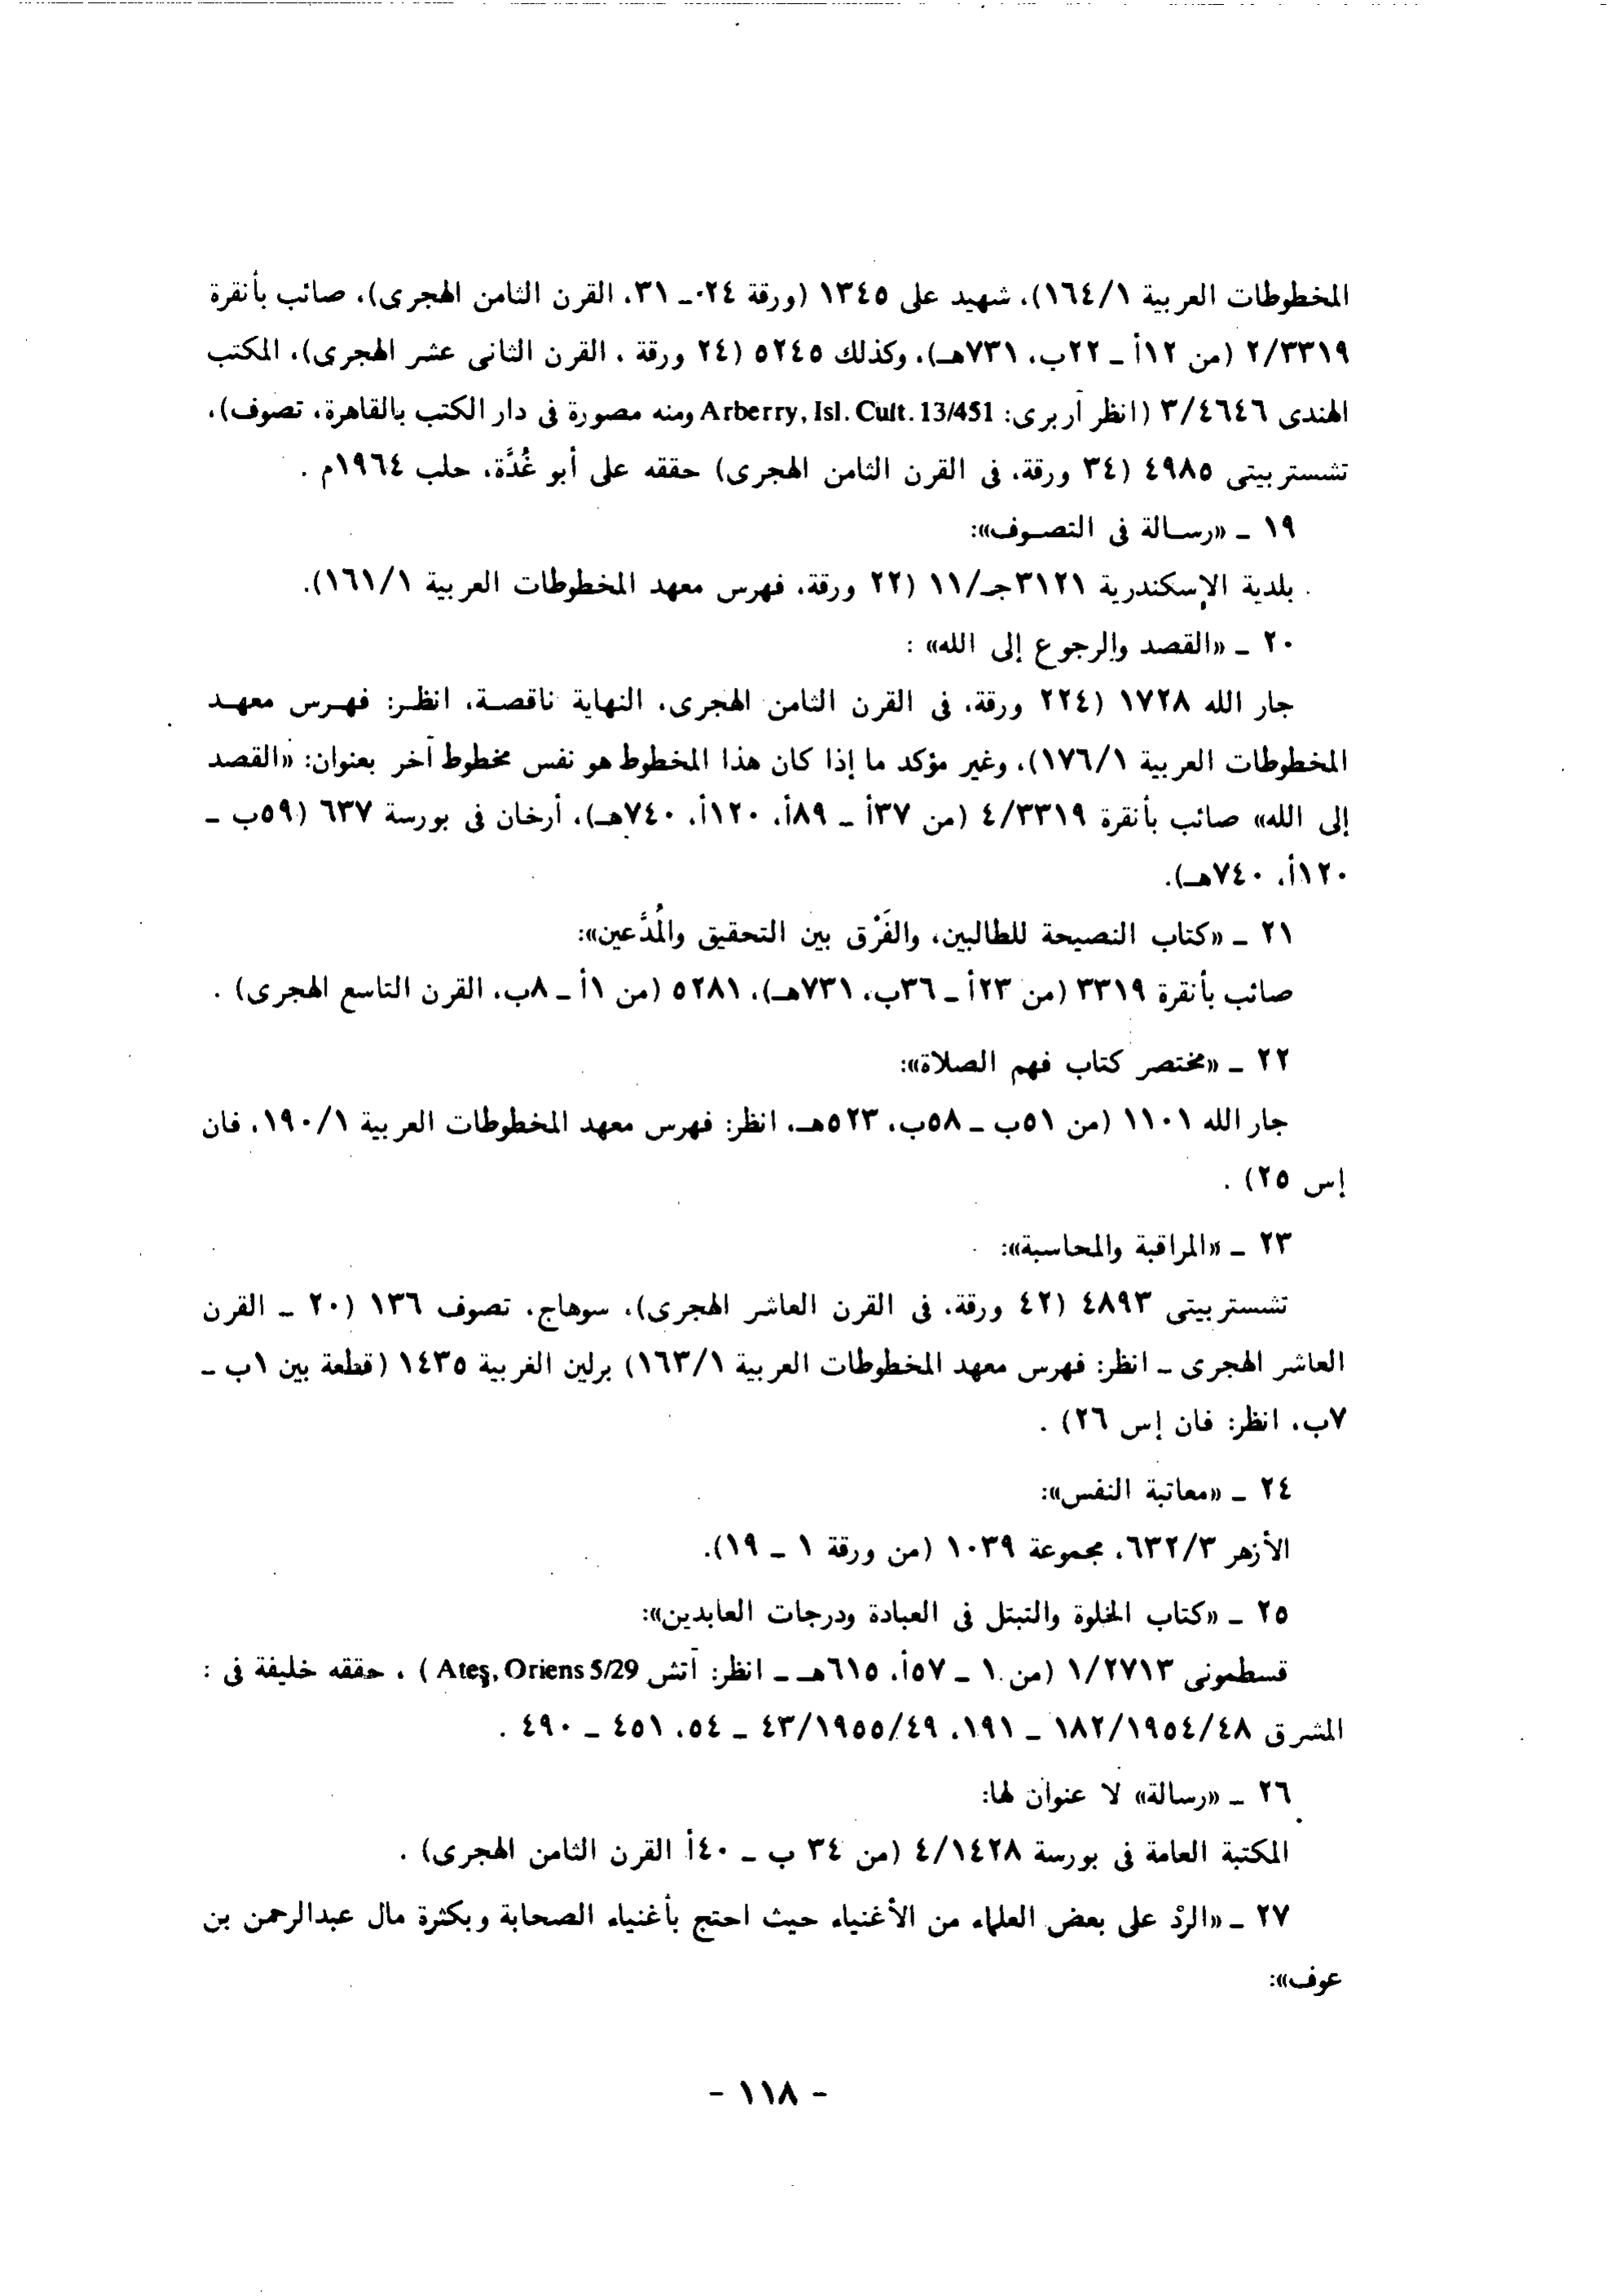 المخطوطات العربية ١/‏١٦٤)، شهيد على ١٣٤٥ (ورقة ٢٤ـ ٣١، القرن الثامن الهجرى)، صائب بأنقرة
٣٣١٩/‏٢ (من ١٢أ ـ ٢٢ب، ٧٣١هـ)، وكذلك ٥٢٤٥ (٢٤ ورقة ، القرن الثانى عشر الهجرى)، المكتب
الهندى ٤٦٤٦/‏٣ (انظر آربرى: Arberry, Isl. Cult. 13/451 ومنه مصورة فى دار الكتب بالقاهرة، تصوف)،
تشستربيتى ٤٩٨٥ (٣٤ ورقة، فى القرن الثامن الهجرى) حققه على أبو غُدَّة، حلب ١٩٦٤م .
١٩ ـ «رسـالة فى التصـوف»:
بلدية الإسكندرية ٣١٢١جـ/‏١١ (٢٢ ورقة، فهرس معهد المخطوطات العربية ١/‏١٦١).
٢٠ ـ «القصد والرجوع إلى الله» :
جار الله ١٧٢٨ (٢٢٤ ورقة، فى القرن الثامن الهجرى، النهاية ناقصـة، انظـر: فهـرس معهـد
المخطوطات العربية ١/‏١٧٦)، وغير مؤكد ما إذا كان هذا المخطوط هو نفس مخطوط آخر بعنوان: «القصد
إلى الله» صائب بأنقرة ٣٣١٩/‏٤ (من ٣٧أ ـ ٨٩أ، ١٢٠أ، ٧٤٠هـ)، أرخان فى بورسة ٦٣٧ (٥٩ب ـ
١٢٠أ، ٧٤٠هـ).
٢١ ـ «كتاب النصيحة للطالبين، والفَرْق بين التحقيق والمُدَّعين»:
صائب بأنقرة ٣٣١٩ (من ٢٣أ ـ ٣٦ب، ٧٣١هـ)، ٥٢٨١ (من ١أ ـ ٨ب، القرن التاسع الهجرى) .
٢٢ ـ «مختصر كتاب فهم الصلاة»:
جار الله ١١٠١ (من ٥١ب ـ ٥٨ب، ٥٢٣هـ، انظر: فهرس معهد المخطوطات العربية ١/‏١٩٠، فان
إس ٢٥) .
٢٣ ـ «المراقبة والمحاسبة»:
تشستربيتى ٤٨٩٣ (٤٢ ورقة، فى القرن العاشر الهجرى)، سوهاج، تصوف ١٣٦ (٢٠ ـ القرن
العاشر الهجرى ـ انظر: فهرس معهد المخطوطات العربية ١/‏١٦٣) برلين الغربية ١٤٣٥ (قطعة بين ١ب ـ
٧ب، انظر: فان إس ٢٦) .
٢٤ ـ «معاتبة النفس»:
الأزهر ٣/‏٦٣٢، مجموعة ١٠٣٩ (من ورقة ١ ـ ١٩).
٢٥ ـ «كتاب الخلوة والتبتل فى العبادة ودرجات العابدين»:
قسطمونى ٢٧١٣/‏١ (من ١ ـ ٥٧أ، ٦١٥هـ ـ انظر: آتش Ateş, Oriens 5/29 ) ، حققه خليفة فى :
المشرق ٤٨/‏١٩٥٤/‏١٨٢ ـ ١٩١، ٤٩/‏١٩٥٥/‏٤٣ ـ ٥٤، ٤٥١ ـ ٤٩٠ .
٢٦ ـ «رسالة» لا عنوان لها:
المكتبة العامة فى بورسة ١٤٢٨/‏٤ (من ٣٤ ب ـ ٤٠أ القرن الثامن الهجرى) .
٢٧ ـ «الردْ على بعض العلماء من الأغنياء حيث احتج بأغنياء الصحابة وبكثرة مال عبدالرحمن بن
عوف»:
- ١١٨ -